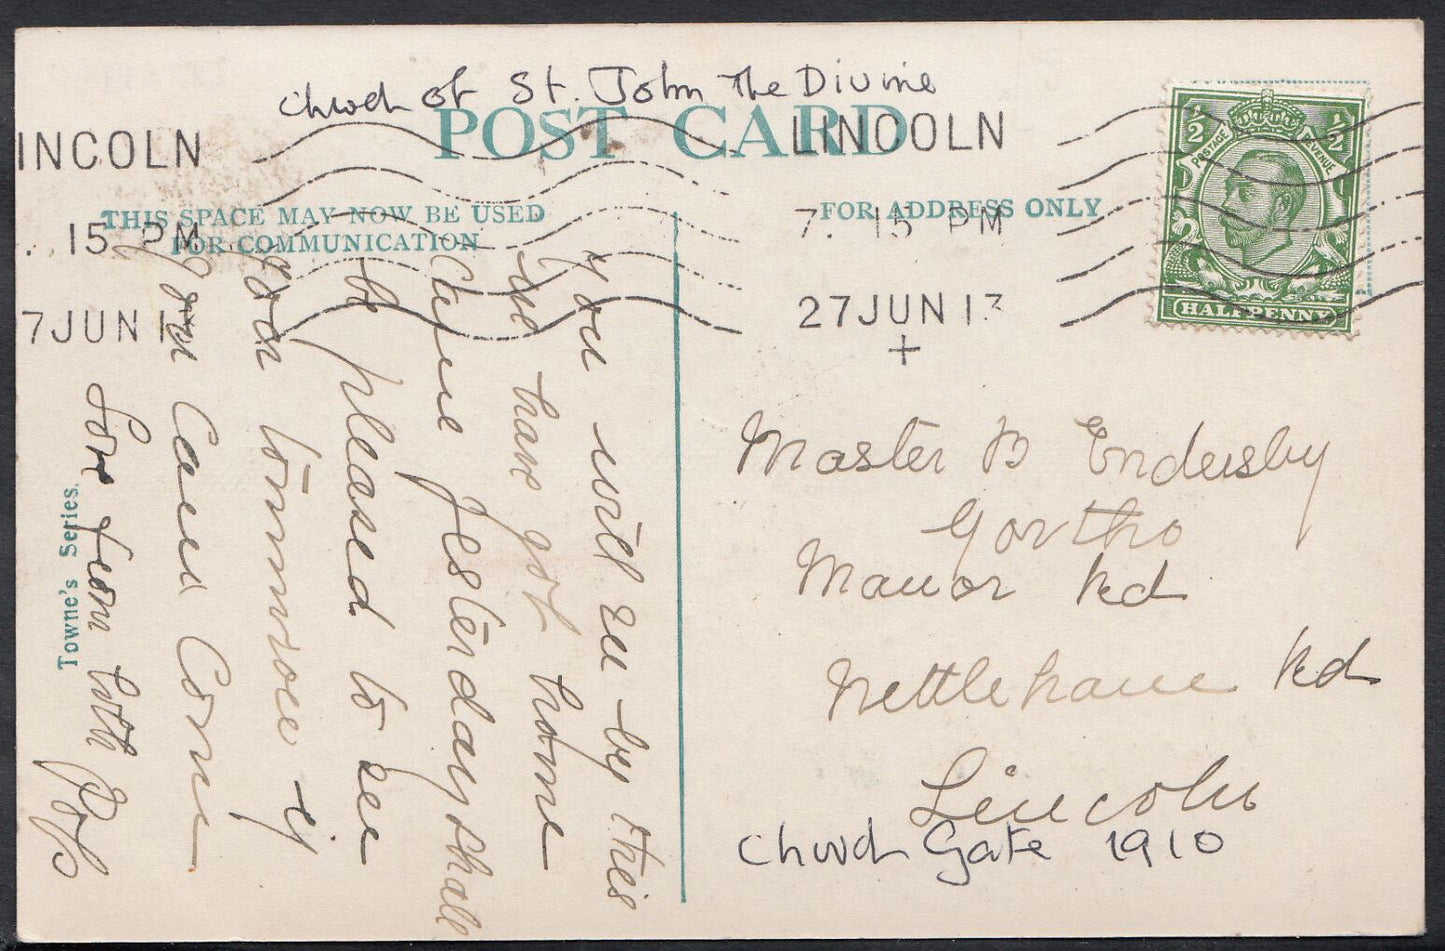 Church of St. John The Divine
POST CARD
INCOLN
LINCOLN
. 15 PM
7. 15 PM
7 JUN 1
27 JUN 13
+
THIS SPACE MAY NOW BE USED
FOR COMMUNICATION
FOR ADDRESS ONLY
½ ½
POSTAGE REVENUE
HALFPENNY
you will see by this
we have got home
Came yesterday shall
be pleased to see
you tommrow if
you can Come
Love from both
Towne's Series.
Master B Endersby
Gortho
Manor Rd
Nettleham Rd
Lincoln
Church Gate 1910